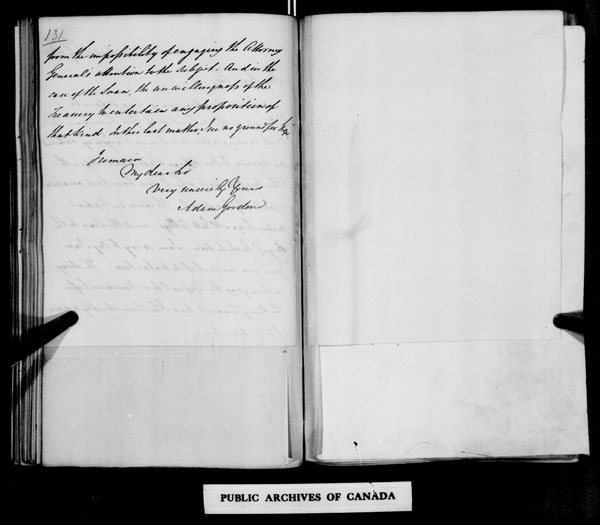 131
from the impossibility of engaging the Attorney
General's attention to the subject - And in the
case of the Loan, the unwillingness of the
Treasury to entertain any proposition of
that kind. In this last matter, I see no ground for hope
I remain
My dear Sir
Very sincerely Yours
Adam Gordon
PUBLIC ARCHIVES OF CANADA